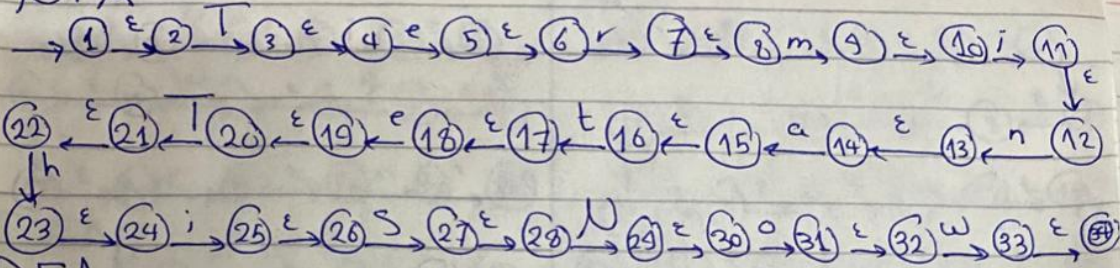 → 1 ε 2 T 3 ε 4 e 5 ε 6 r 7 ε 8 m 9 ε 10 i 11
ε
22 ε 21 T 20 ε 19 e 18 ε 17 t 16 ε 15 a 14 ε 13 n 12
h
23 ε 24 i 25 ε 26 S 27 ε 28 N 29 ε 30 o 31 ε 32 w 33 ε 34